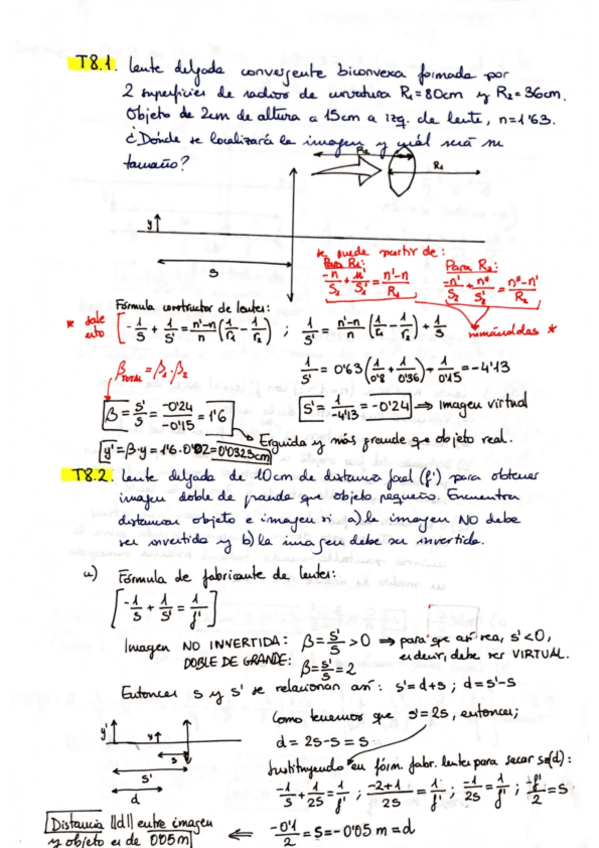 T8.1. Lente delgada convergente biconvexa formada por
2 superficies de radios de curvatura R₁=80cm y R₂=36cm.
Objeto de 2cm de altura a 15cm a izq. de lente, n=1'63.
¿Dónde se localizará la imagen y cuál será su
tamaño?
R₂
R₁
y
s
se puede partir de:
Para R₁:
-n/S₁ + n'/S₁' = n'-n/R₁
Para R₂:
-n'/S₂ + n''/S₂' = n''-n'/R₂
Fórmula constructor de lentes:
* sale esto [-1/S + 1/S' = n'-n/n (1/r₁ - 1/r₂)] ; 1/S' = n'-n/n (1/r₁ - 1/r₂) + 1/S
sumándolas *
βtotal = β₁·β₂
1/S' = 0'63 (1/0'8 + 1/0'36) + 1/-0'15 = -4'13
β = S'/S = -0'24/-0'15 = 1'6
S' = 1/-4'13 = -0'24 ⇒ Imagen virtual
Erguida y más grande que objeto real.
y' = β·y = 1'6·0'02 = 0'0323cm
T8.2. Lente delgada de 10cm de distancia focal (f') para obtener
imagen doble de grande que objeto pequeño. Encuentra
distancias objeto e imagen si a) la imagen NO debe
ser invertida y b) la imagen debe ser invertida.
a) Fórmula de fabricante de lentes:
[-1/S + 1/S' = 1/f']
Imagen NO INVERTIDA: β = S'/S > 0 ⇒ para que así sea, s'<0,
es decir, debe ser VIRTUAL.
DOBLE DE GRANDE: β = S'/S = 2
Entonces s y s' se relacionan así: s'=d+s ; d=s'-s
Como tenemos que s'=2s, entonces;
d = 2s-s = s
y'
y
s
s'
d
Sustituyendo en fórm. fabr. lentes para sacar s(d):
-1/S + 1/2S = 1/f' ; -2+1/2S = 1/f' ; -1/2S = 1/f' ; -f'/2 = S
-0'1/2 = S = -0'05 m = d
⇐
Distancia ||d|| entre imagen
y objeto es de 0'05m